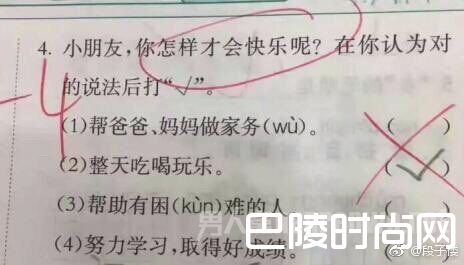 4. 小朋友,你怎样才会快乐呢? 在你认为对
的说法后打“√”。
-4
(1)帮爸爸、妈妈做家务(wù)。 ( )
(2)整天吃喝玩乐。 (√)
(3)帮助有困(kùn)难的人 ( )
(4)努力学习,取得好成绩。
巴陵时尚网
@段子楼